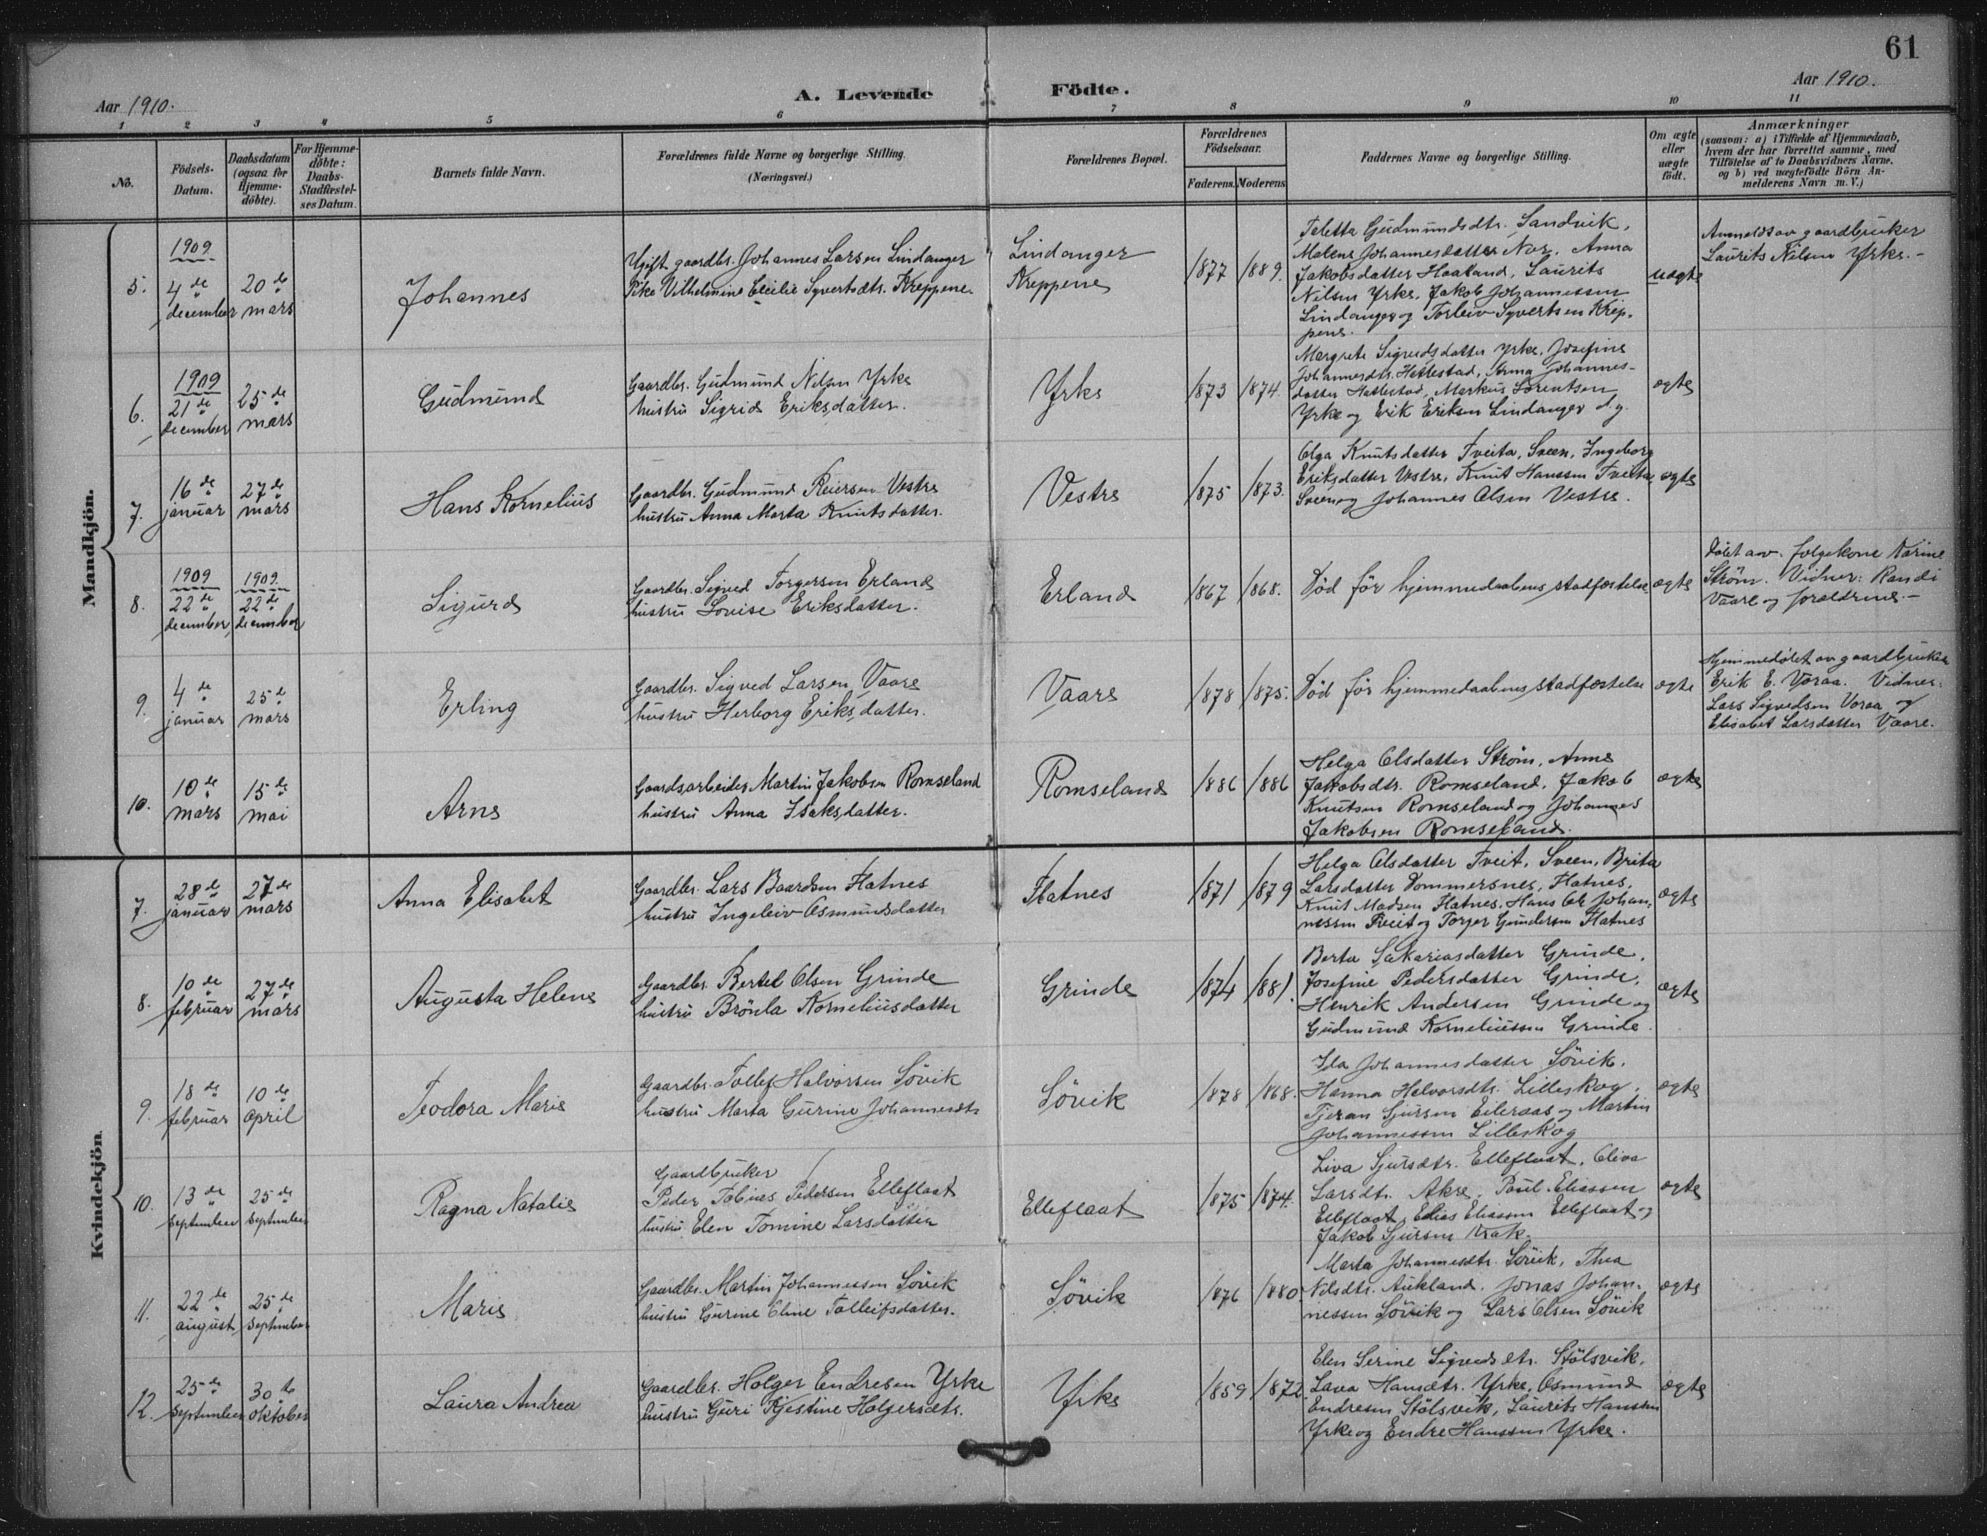 61
Aar 1910.
A. Levende Födte.
Aar 1910.
1 2 3 4 5 6 7 8 9 10 11
No.
Födsels-
Datum.
Daabsdatum
(ogsaa for
Hjemme-
döbte).
For Hjemme-
döbte:
Daabs-
Stadfæstel-
ses Datum.
Barnets fulde Navn.
Forældrenes fulde Navne og borgerlige Stilling.
(Næringsvei.)
Forældrenes Bopæl.
Forældrenes
Födselsaar.
Faderens. Moderens
Faddernes Navne og borgerlige Stilling.
Om ægte
eller
uægte
födt.
Anmærkninger
(saasom: a) i Tilfælde af Hjemmedaab,
hvem der har forrettet samme, med
Tilföielse af to Daabsvidners Navne,
og b) ved uægtefödte Börn An-
melderens Navn m. V.)
Mandkjön.
5.
1909
4de
december
20de
mars
Johannes
Ugift gaardbr. Johannes Larsen Lindanger
Pike Vilhelmine Cecilie Syvertsdtr. Kreppene.
Lindanger
Kreppene
1877 1889.
Teletta Gudmundsdtr. Sandvik,
Malene Johannesdatter Nor, Anna
Jakobsdatter Haaland, Laurits
Nilsen Yrke, Jakob Johannessen
Lindanger og Torleiv Syvertsen Krep-
pene.
uægte
Anmeldt av gaardbruker
Laurits Nilsen Yrke.-
6.
1909
21de
december
25de
mars
Gudmund
Gaardbr. Gudmund Nilsen Yrke
hustru Sigrid Eriksdatter.
Yrke
1873 1874.
Margrete Sigvedsdatter Yrke, Josefine
Johannesdtr. Hettestad, Anna Johannes-
datter Hettestad, Markus Lorentsen
Yrke og Erik Eriksen Lindanger d.y.
ægte
7.
16de
januar
27de
mars
Hans Kornelius
Gaardbr. Gudmund Reiersen Vestre
hustru Anna Marta Knutsdatter.
Vestre
1875 1873.
Olga Knutsdatter Tveita, Sveen, Ingeborg
Eriksdatter Vestre, Knut Hanssen Tveita
Sveen og Johannes Olsen Vestre.
ægte
8.
1909
22de
december
1909.
22de
december
Sigurd
Gaardbr. Sigved Torgersen Erland
hustru Lovise Eriksdatter.
Erland
1867 1868.
Död før hjemmedaabens stadfæstelse
ægte
Døbt av jolgekone Karine
Strøm. Vidner: Randi
Vaare og forældrene.-
9.
4de
januar
25de
mars
Erling
Gaardbr. Sigved Larsen Vaare
hustru Herborg Eriksdatter.
Vaare
1878 1875.
Död før hjemmedaabens stadfæstelse
ægte
Hjemmedøbt av gaardbruker
Erik E. Voraa. Vidner:
Lars Sigvedsen Voraa og
Elisabet Larsdatter Vaare.
10.
10de
mars
15de
mai
Arne
Gaardsarbeider Martin Jakobsen Romseland
hustru Anna Isaksdatter.
Romseland
1886 1886
Helga Olsdatter Strøm, Anne
Jakobsdtr. Romseland, Jakob
Knutsen Romseland og Johannes
Jakobsen Romseland.
ægte
Kvindekjön.
7.
28de
januar
27de
mars
Anna Elisabet
Gaardbr. Lars Baardsen Flatnes
hustru Ingeleiv Osmundsdatter
Flatnes
1871 1879
Helga Olsdatter Tveit, Sveen, Brita
Larsdatter Dommersnes, Flatnes,
Knut Madsen Flatnes, Hans Johan-
nessen Tveit og Torger Gundersen Flatnes
ægte
8.
10de
februar
27de
mars
Augusta Helene
Gaardbr. Bertel Olsen Grinde
hustru Brönla Korneliusdatter
Grinde
1874 1881.
Berta Sakariasdatter Grinde,
Josefine Pedersdatter Grinde,
Henrik Andersen Grinde og
Gudmund Korneliussen Grinde.
ægte
9.
18de
februar
10de
april
Teodora Marie
Gaardbr. Tollef Halvorsen Sövik
hustru Marta Gurine Johannesdtr
Sövik
1878 1868.
Ida Johannesdatter Sövik,
Hanna Halvorsdtr. Lilleskog,
Tjeran Sjursen Eileraas og Martin
Johannessen Lilleskog
ægte
10.
13de
september
25de
september
Ragna Natalie
Gaardbruker
Peder Tobias Pedersen Elleflaat
hustru Elen Tomine Larsdatter
Elleflaat
1875 1874.
Liva Sjursdtr. Elleflaat, Oliva
Larsdtr. Akre, Poul Eliassen
Elleflaat, Elias Eliassen Elleflaat og
Jakob Sjursen Krak.
ægte
11.
22de
august
25de
september
Marie
Gaardbr. Martin Johannessen Sövik
hustru Gurine Eline Tolleifsdatter.
Sövik
1876 1880.
Marta Johannesdtr. Sövik, Thea
Nilsdtr. Aukland, Jonas Johan-
nessen Sövik og Lars Olsen Sövik
ægte
12.
25de
september
30te
oktober
Laura Andrea
Gaardbr. Holger Endresen Yrke
hustru Guri Kjestine Holgersdtr.
Yrke
1859 1872
Elen Serine Sigvedsdtr. Stölsvik,
Lava Hansdtr. Yrke, Osmund
Endresen Stölsvik, Laurits Hanssen
Yrke og Endre Hanssen Yrke.
ægte